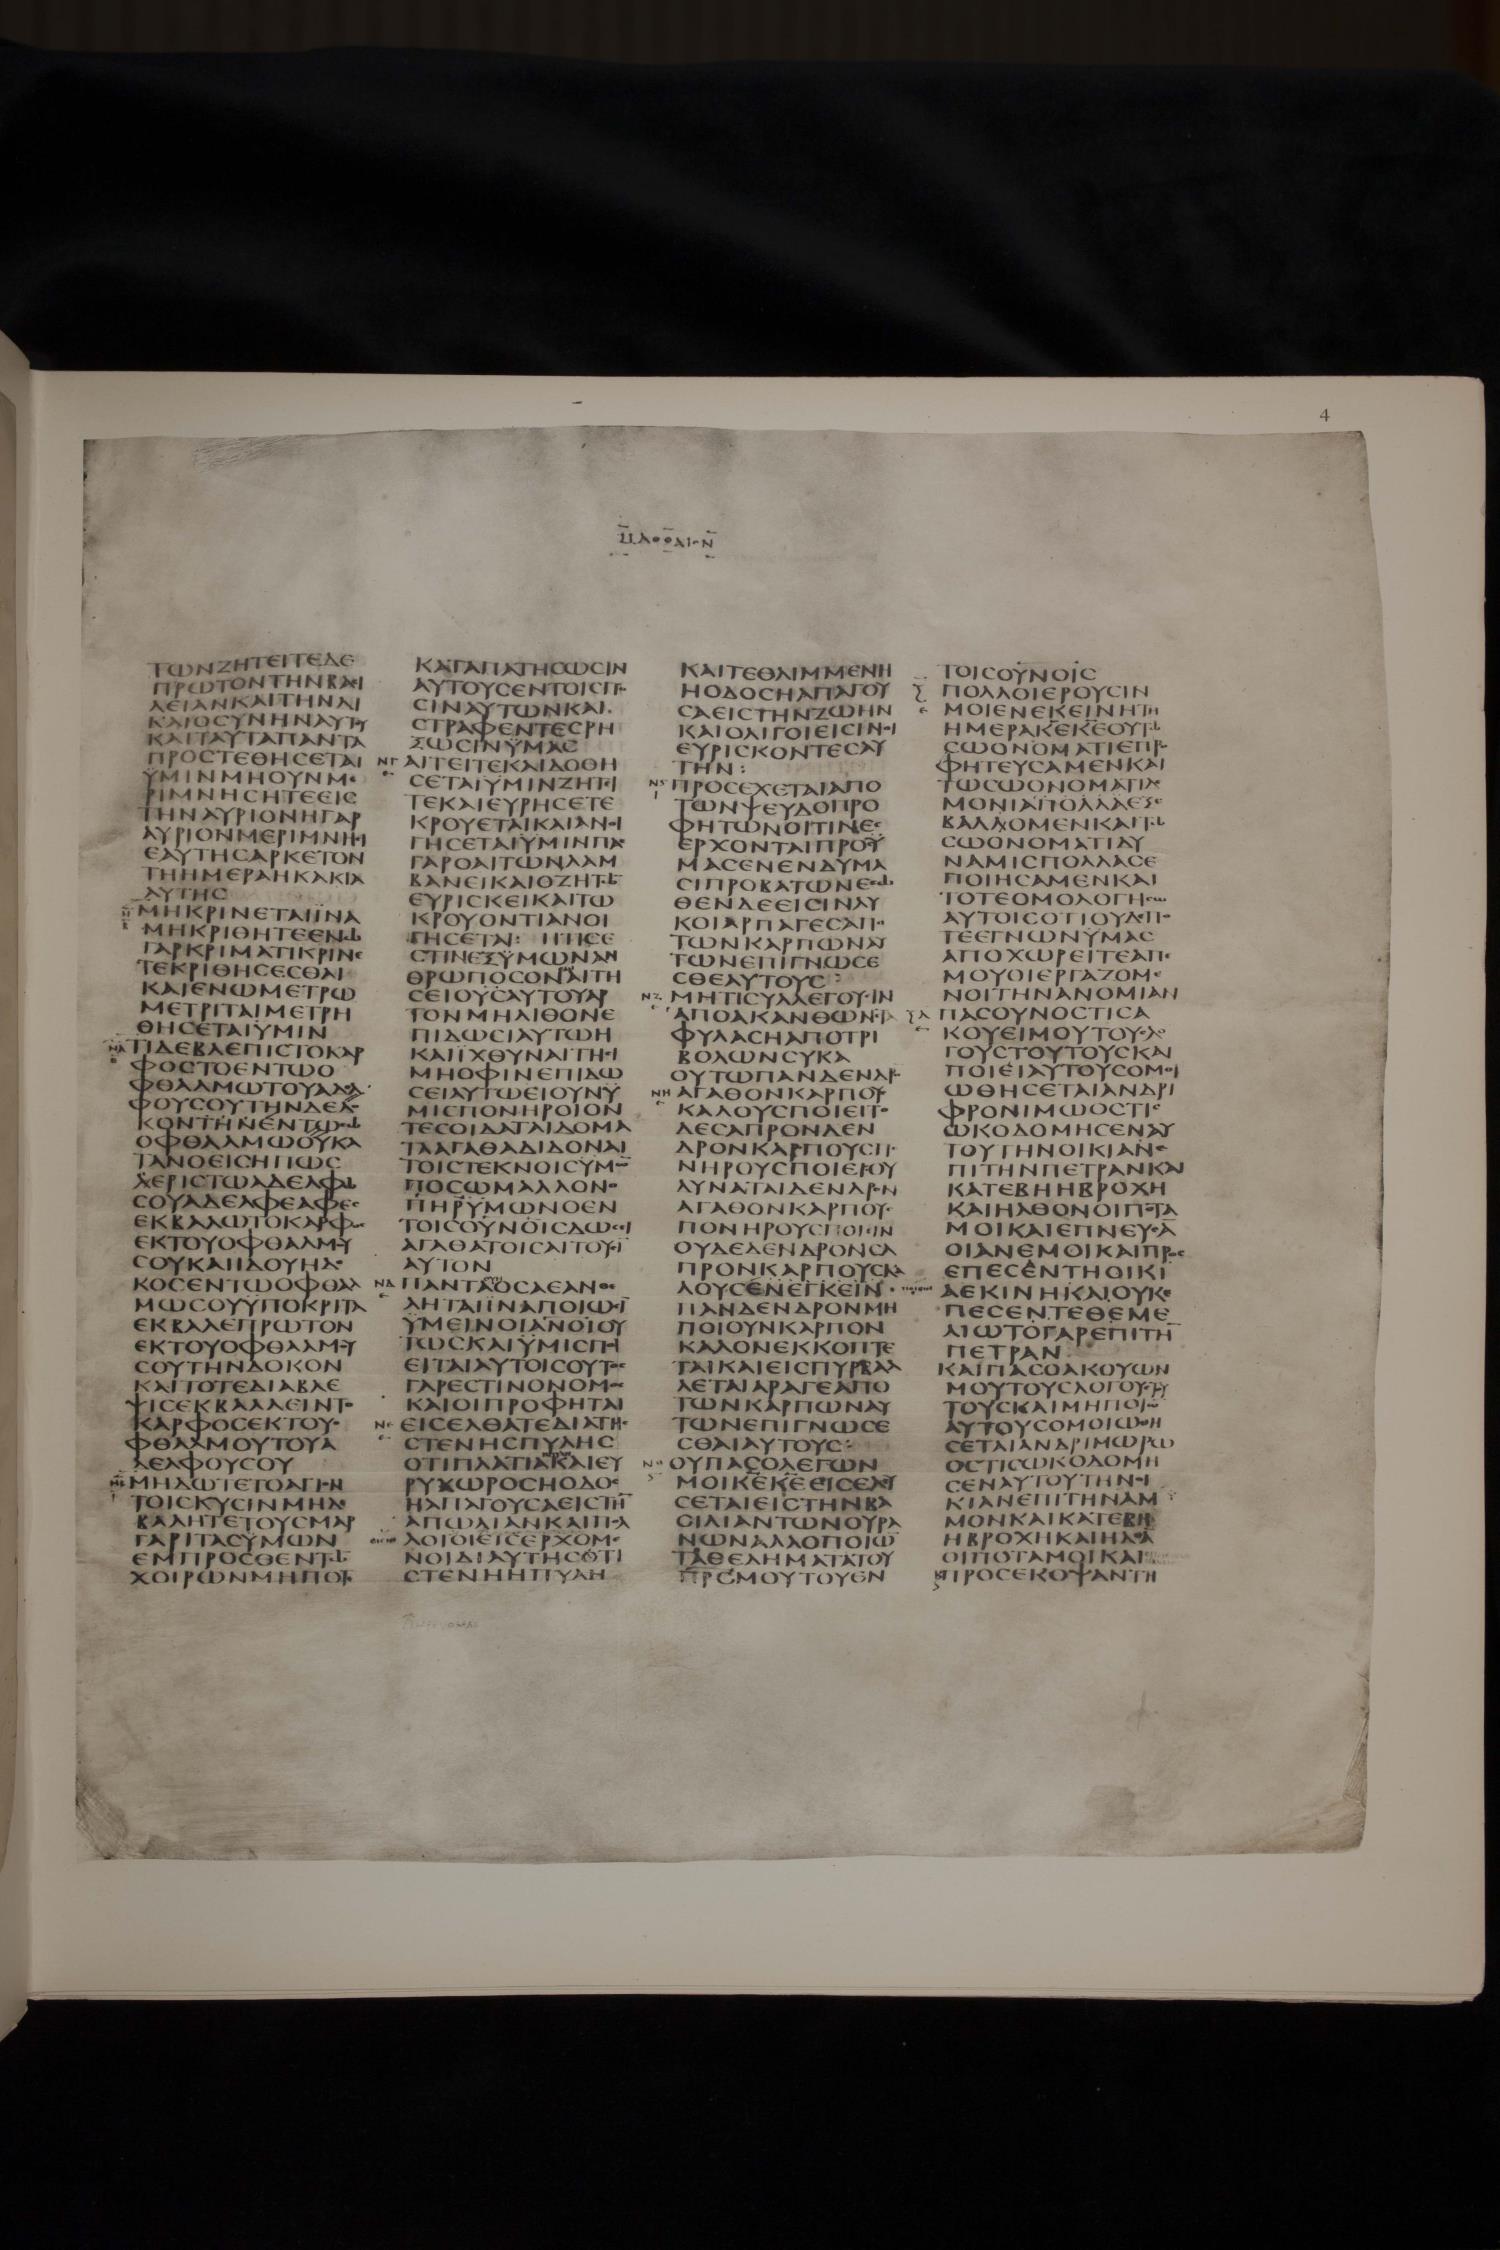 4
ΜΑΘΘΑΙΟΝ
ΤΩΝΖΗΤΕΙΤΕΔΕ
ΠΡΩΤΟΝΤΗΝΒΑϹΙ
ΛΕΙΑΝΚΑΙΤΗΝΔΙ
ΚΑΙΟϹΥΝΗΝΑΥΤΟΥ
ΚΑΙΤΑΥΤΑΠΑΝΤΑ
ΠΡΟϹΤΕΘΗϹΕΤΑΙ
ΫΜΙΝΜΗΟΥΝΜΕ
ΡΙΜΝΗϹΗΤΕΕΙϹ
ΤΗΝΑΥΡΙΟΝΗΓΑΡ
ΑΥΡΙΟΝΜΕΡΙΜΝΗϹΙ
ΕΑΥΤΗϹΑΡΚΕΤΟΝ
ΤΗΗΜΕΡΑΗΚΑΚΙΑ
ΑΥΤΗϹ
ΜΗΚΡΙΝΕΤΑΙΪΝΑ
ΜΗΚΡΙΘΗΤΕΕΝΩ
ΓΑΡΚΡΙΜΑΤΙΚΡΙΝΕ
ΤΕΚΡΙΘΗϹΕϹΘΑΙ
ΚΑΙΕΝΩΜΕΤΡΩ
ΜΕΤΡΙΤΑΙΜΕΤΡΗ
ΘΗϹΕΤΑΙΫΜΙΝ
ΤΙΔΕΒΛΕΠΙϹΤΟΚΑΡ
ΦΟϹΤΟΕΝΤΩΟ
ΦΘΑΛΜΩΤΟΥΑΔΕΛ
ΦΟΥϹΟΥΤΗΝΔΕΔΟ
ΚΟΝΤΗΝΕΝΤΩϹΩ
ΟΦΘΑΛΜΩΟΥΚΑ
ΤΑΝΟΕΙϹΗΠΩϹ
ΛΕΡΙϹΤΩΑΔΕΛΦΩ
ϹΟΥΑΔΕΛΦΕΑΦΕϹ
ΕΚΒΑΛΩΤΟΚΑΡΦΟϹ
ΕΚΤΟΥΟΦΘΑΛΜΟΥ
ϹΟΥΚΑΙΙΔΟΥΗΔΟ
ΚΟϹΕΝΤΩΟΦΘΑΛ
ΜΩϹΟΥΫΠΟΚΡΙΤΑ
ΕΚΒΑΛΕΠΡΩΤΟΝ
ΕΚΤΟΥΟΦΘΑΛΜΟΥ
ϹΟΥΤΗΝΔΟΚΟΝ
ΚΑΙΤΟΤΕΔΙΑΒΛΕ
ΨΙϹΕΚΒΑΛΛΕΙΝΤΟ
ΚΑΡΦΟϹΕΚΤΟΥΟ
ΦΘΑΛΜΟΥΤΟΥΑ
ΔΕΛΦΟΥϹΟΥ
ΜΗΔΩΤΕΤΟΑΓΙΟΝ
ΤΟΙϹΚΥϹΙΝΜΗΔΕ
ΒΑΛΗΤΕΤΟΥϹΜΑΡ
ΓΑΡΙΤΑϹΫΜΩΝ
ΕΜΠΡΟϹΘΕΝΤΩ
ΧΟΙΡΩΝΜΗΠΟΤΕ
ΚΑΤΑΠΑΤΗϹΩϹΙΝ
ΑΥΤΟΥϹΕΝΤΟΙϹΠΟ
ϹΙΝΑΥΤΩΝΚΑΙ
ϹΤΡΑΦΕΝΤΕϹΡΗ
ΞΩϹΙΝΫΜΑϹ
ΝΓ ΑΙΤΕΙΤΕΚΑΙΔΟΘΗ
ϹΕΤΑΙΫΜΙΝΖΗΤΕΙ
ΤΕΚΑΙΕΥΡΗϹΕΤΕ
ΚΡΟΥΕΤΑΙΚΑΙΑΝΟΙ
ΓΗϹΕΤΑΙΫΜΙΝΠΑϹ
ΓΑΡΟΑΙΤΩΝΛΑΜ
ΒΑΝΕΙΚΑΙΟΖΗΤΩ
ΕΥΡΙϹΚΕΙΚΑΙΤΩ
ΚΡΟΥΟΝΤΙΑΝΟΙ
ΓΗϹΕΤΑΙ: ΗΤΙϹΕ
ϹΤΙΝΕΞΫΜΩΝΑΝ
ΘΡΩΠΟϹΟΝΑΙΤΗ
ϹΕΙΟΥϹΑΥΤΟΥΑΡ
ΤΟΝΜΗΛΙΘΟΝΕ
ΠΙΔΩϹΙΑΥΤΩΗ
ΚΑΙΪΧΘΥΝΑΙΤΗϹΙ
ΜΗΟΦΙΝΕΠΙΔΩ
ϹΕΙΑΥΤΩΕΙΟΥΝΫ
ΜΙϹΠΟΝΗΡΟΙΟΝ
ΤΕϹΟΙΔΑΤΑΙΔΟΜΑ
ΤΑΑΓΑΘΑΔΙΔΟΝΑΙ
ΤΟΙϹΤΕΚΝΟΙϹΫΜΩ
ΠΟϹΩΜΑΛΛΟΝΟ
ΠΗΡΫΜΩΝΟΕΝ
ΤΟΙϹΟΥΝΟΙϹΔΩϹΙ
ΑΓΑΘΑΤΟΙϹΑΙΤΟΥϹΙ
ΑΥΤΟΝ
ΝΔ ΠΑΝΤΑΟϹΑΕΑΝΘΕ
ΛΗΤΑΙΪΝΑΠΟΙΩϹΙ
ΫΜΕΙΝΟΙΑΝΟΙΟΥ
ΤΩϹΚΑΙΫΜΙϹΠΟΙ
ΕΙΤΑΙΑΥΤΟΙϹΟΥΤΟϹ
ΓΑΡΕϹΤΙΝΟΝΟΜΟϹ
ΚΑΙΟΙΠΡΟΦΗΤΑΙ
ΝΕ ΕΙϹΕΛΘΑΤΕΔΙΑΤΗϹ
ϹΤΕΝΗϹΠΥΛΗϹ
ΟΤΙΠΛΑΤΙΑΚΑΙΕΥ
ΡΥΧΩΡΟϹΗΟΔΟϹ
ΗΑΠΑΓΟΥϹΑΕΙϹΤΗ
ΑΠΩΛΙΑΝΚΑΙΠΟΛ
ΛΟΙΟΙΕΙϹΕΡΧΟΜΕ
ΝΟΙΔΙΑΥΤΗϹΟΤΙ
ϹΤΕΝΗΗΠΥΛΗ
ΚΑΙΤΕΘΛΙΜΜΕΝΗ
ΗΟΔΟϹΗΑΠΑΓΟΥ
ϹΑΕΙϹΤΗΝΖΩΗΝ
ΚΑΙΟΛΙΓΟΙΕΙϹΙΝΟΙ
ΕΥΡΙϹΚΟΝΤΕϹΑΥ
ΤΗΝ:
ΝϚ ΠΡΟϹΕΧΕΤΑΙΑΠΟ
ΤΩΝΨΕΥΔΟΠΡΟ
ΦΗΤΩΝΟΙΤΙΝΕϹ
ΕΡΧΟΝΤΑΙΠΡΟΫ
ΜΑϹΕΝΕΝΔΥΜΑ
ϹΙΠΡΟΒΑΤΩΝΕϹΩ
ΘΕΝΔΕΕΙϹΙΝΛΥ
ΚΟΙΑΡΠΑΓΕϹΑΠΟ
ΤΩΝΚΑΡΠΩΝΑΥ
ΤΩΝΕΠΙΓΝΩϹΕ
ϹΘΕΑΥΤΟΥϹ:
ΝΖ ΜΗΤΙϹΥΛΛΕΓΟΥϹΙΝ
ΑΠΟΑΚΑΝΘΩΝϹΤΑ
ΦΥΛΑϹΗΑΠΟΤΡΙ
ΒΟΛΩΝϹΥΚΑ
ΟΥΤΩΠΑΝΔΕΝΔΡΟ
ΝΗ ΑΓΑΘΟΝΚΑΡΠΟΥϹ
ΚΑΛΟΥϹΠΟΙΕΙΤΟ
ΔΕϹΑΠΡΟΝΔΕΝ
ΔΡΟΝΚΑΡΠΟΥϹΠΟ
ΝΗΡΟΥϹΠΟΙΕΙΟΥ
ΔΥΝΑΤΑΙΔΕΝΔΡΟΝ
ΑΓΑΘΟΝΚΑΡΠΟΥϹ
ΠΟΝΗΡΟΥϹΠΟΙΕΙΝ
ΟΥΔΕΔΕΝΔΡΟΝϹΑ
ΠΡΟΝΚΑΡΠΟΥϹΚΑ
ΛΟΥϹΕΝΕΓΚΕΙΝ
ΠΑΝΔΕΝΔΡΟΝΜΗ
ΠΟΙΟΥΝΚΑΡΠΟΝ
ΚΑΛΟΝΕΚΚΟΠΤΕ
ΤΑΙΚΑΙΕΙϹΠΥΡΒΑΛ
ΛΕΤΑΙΑΡΑΓΕΑΠΟ
ΤΩΝΚΑΡΠΩΝΑΥ
ΤΩΝΕΠΙΓΝΩϹΕ
ϹΘΑΙΑΥΤΟΥϹ:
ΝΘ ΟΥΠΑϹΟΛΕΓΩΝ
ΜΟΙΚΕΚΕΕΙϹΕΛΕΥ
ϹΕΤΑΙΕΙϹΤΗΝΒΑ
ϹΙΛΙΑΝΤΩΝΟΥΡΑ
ΝΩΝΑΛΛΟΠΟΙΩ
ΤΑΘΕΛΗΜΑΤΑΤΟΥ
ΠΡϹΜΟΥΤΟΥΕΝ
ΤΟΙϹΟΥΝΟΙϹ
Ξ ΠΟΛΛΟΙΕΡΟΥϹΙΝ
ΜΟΙΕΝΕΚΕΙΝΗΤΗ
ΗΜΕΡΑΚΕΚΕΟΥΤΩ
ϹΩΟΝΟΜΑΤΙΕΠΡΟ
ΦΗΤΕΥϹΑΜΕΝΚΑΙ
ΤΩϹΩΟΝΟΜΑΤΙΔΕ
ΜΟΝΙΑΠΟΛΛΑΕΞΕ
ΒΑΛΛΟΜΕΝΚΑΙΤΩ
ϹΩΟΝΟΜΑΤΙΔΥ
ΝΑΜΙϹΠΟΛΛΑϹΕ
ΠΟΙΗϹΑΜΕΝΚΑΙ
ΤΟΤΕΟΜΟΛΟΓΗϹΩ
ΑΥΤΟΙϹΟΤΙΟΥΔΕΠΟ
ΤΕΕΓΝΩΝΫΜΑϹ
ΑΠΟΧΩΡΕΙΤΕΑΠΕ
ΜΟΥΟΙΕΡΓΑΖΟΜΕ
ΝΟΙΤΗΝΑΝΟΜΙΑΝ
ΞΑ ΠΑϹΟΥΝΟϹΤΙϹΑ
ΚΟΥΕΙΜΟΥΤΟΥϹΛΟ
ΓΟΥϹΤΟΥΤΟΥϹΚΑΙ
ΠΟΙΕΙΑΥΤΟΥϹΟΜΟΙ
ΩΘΗϹΕΤΑΙΑΝΔΡΙ
ΦΡΟΝΙΜΩΟϹΤΙϹ
ΩΚΟΔΟΜΗϹΕΝΑΥ
ΤΟΥΤΗΝΟΙΚΙΑΝΕ
ΠΙΤΗΝΠΕΤΡΑΝΚΑΙ
ΚΑΤΕΒΗΗΒΡΟΧΗ
ΚΑΙΗΛΘΟΝΟΙΠΟΤΑ
ΜΟΙΚΑΙΕΠΝΕΥϹΑ
ΟΙΑΝΕΜΟΙΚΑΙΠΡΟϹ
ΕΠΕϹΕΝΤΗΟΙΚΙ
ΑΕΚΙΝΗΚΑΙΟΥΚΕ
ΠΕϹΕΝΤΕΘΕΜΕ
ΛΙΩΤΟΓΑΡΕΠΙΤΗ
ΠΕΤΡΑΝ
ΚΑΙΠΑϹΟΑΚΟΥΩΝ
ΜΟΥΤΟΥϹΛΟΓΟΥϹΤΟΥ
ΤΟΥϹΚΑΙΜΗΠΟΙΩ
ΑΥΤΟΥϹΟΜΟΙΩΘΗ
ϹΕΤΑΙΑΝΔΡΙΜΩΡΩ
ΟϹΤΙϹΩΚΟΔΟΜΗ
ϹΕΝΑΥΤΟΥΤΗΝΟΙ
ΚΙΑΝΕΠΙΤΗΝΑΜ
ΜΟΝΚΑΙΚΑΤΕΒΗ
ΗΒΡΟΧΗΚΑΙΗΛΘΑ
ΟΙΠΟΤΑΜΟΙΚΑΙ
ΠΡΟϹΕΚΟΨΑΝΤΗ